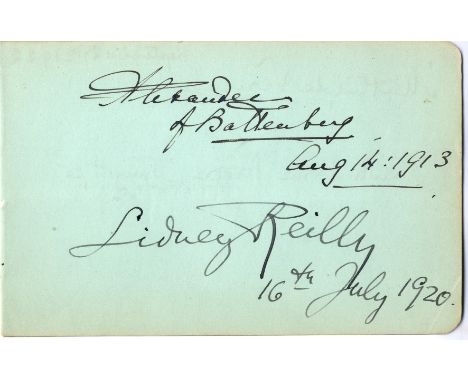 Alexander
of Battenberg
Aug 14: 1913
Sidney Reilly
16th July 1920.